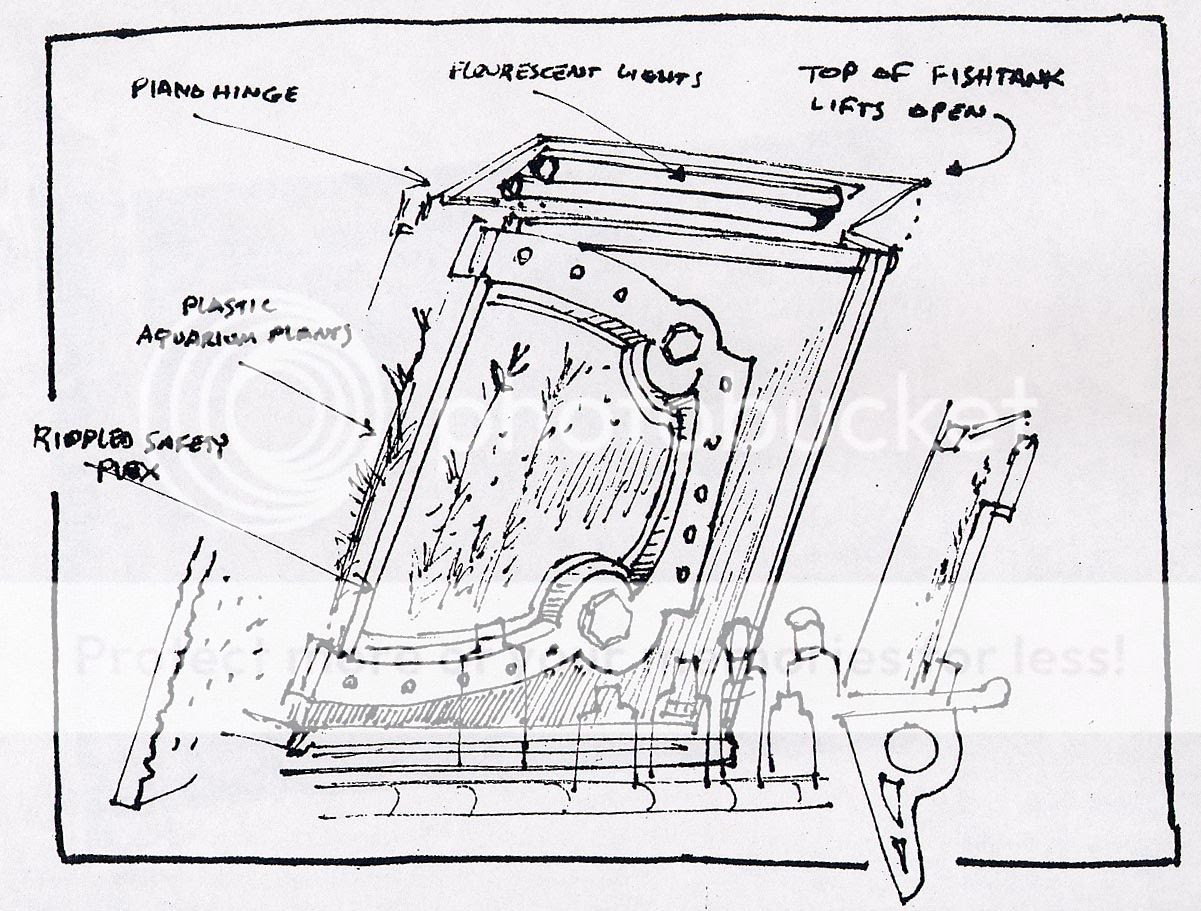 PIANO HINGE
FLOURESCENT LIGHTS
TOP OF FISHTANK
LIFTS OPEN
PLASTIC
AQUARIUM PLANTS
RIPPLED SAFETY
PLEX
photobucket
Protect more of your memories for less!